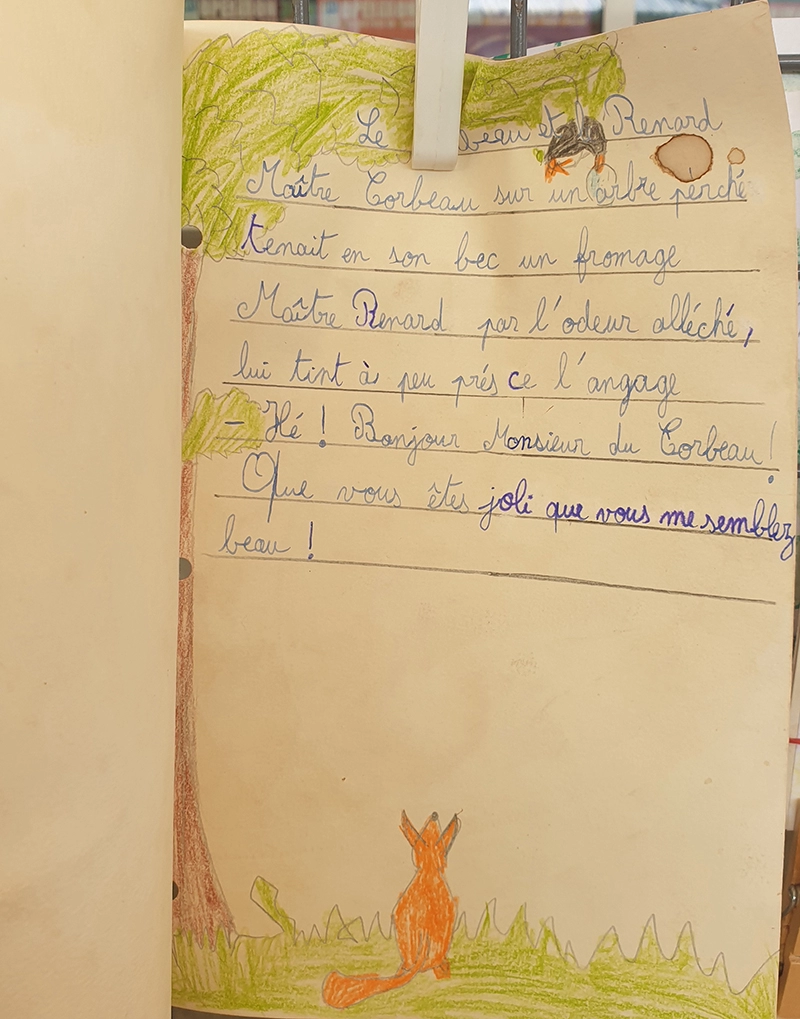 Le beau et l Renard
Maître Corbeau sur un arbre perché
tenait en son bec un fromage
Maître Renard par l'odeur alléché,
lui tint à peu prés ce l'angage
- Hé ! Bonjour Monsieur du Corbeau !
Que vous êtes joli que vous me semblez
beau !